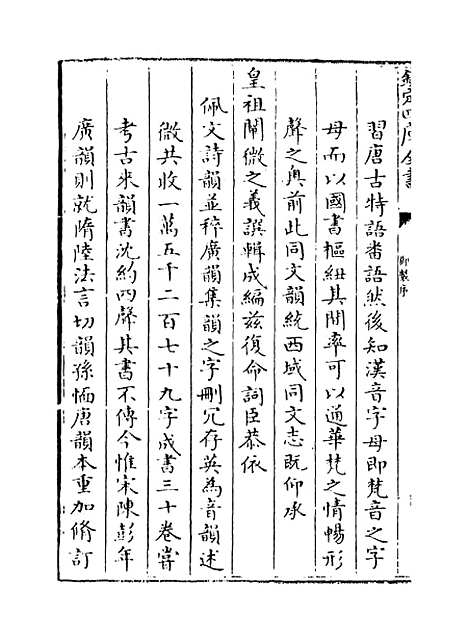 欽定四庫全書
御製序
習唐古特語番語然後知漢音字母即梵音之字
母而以國書樞紐其間率可以通華梵之情暢形
聲之奥前此同文韻統西域同文志既仰承
皇祖闡微之義譔輯成編兹復命詞臣恭依
佩文詩韻並稡廣韻集韻之字刪冗存英為音韻述
微共收一萬五千二百七十九字成書三十卷嘗
考古来韻書沈約四聲其書不傳今惟宋陳彭年
廣韻則就隋陸法言切韻孫愐唐韻本重加脩訂